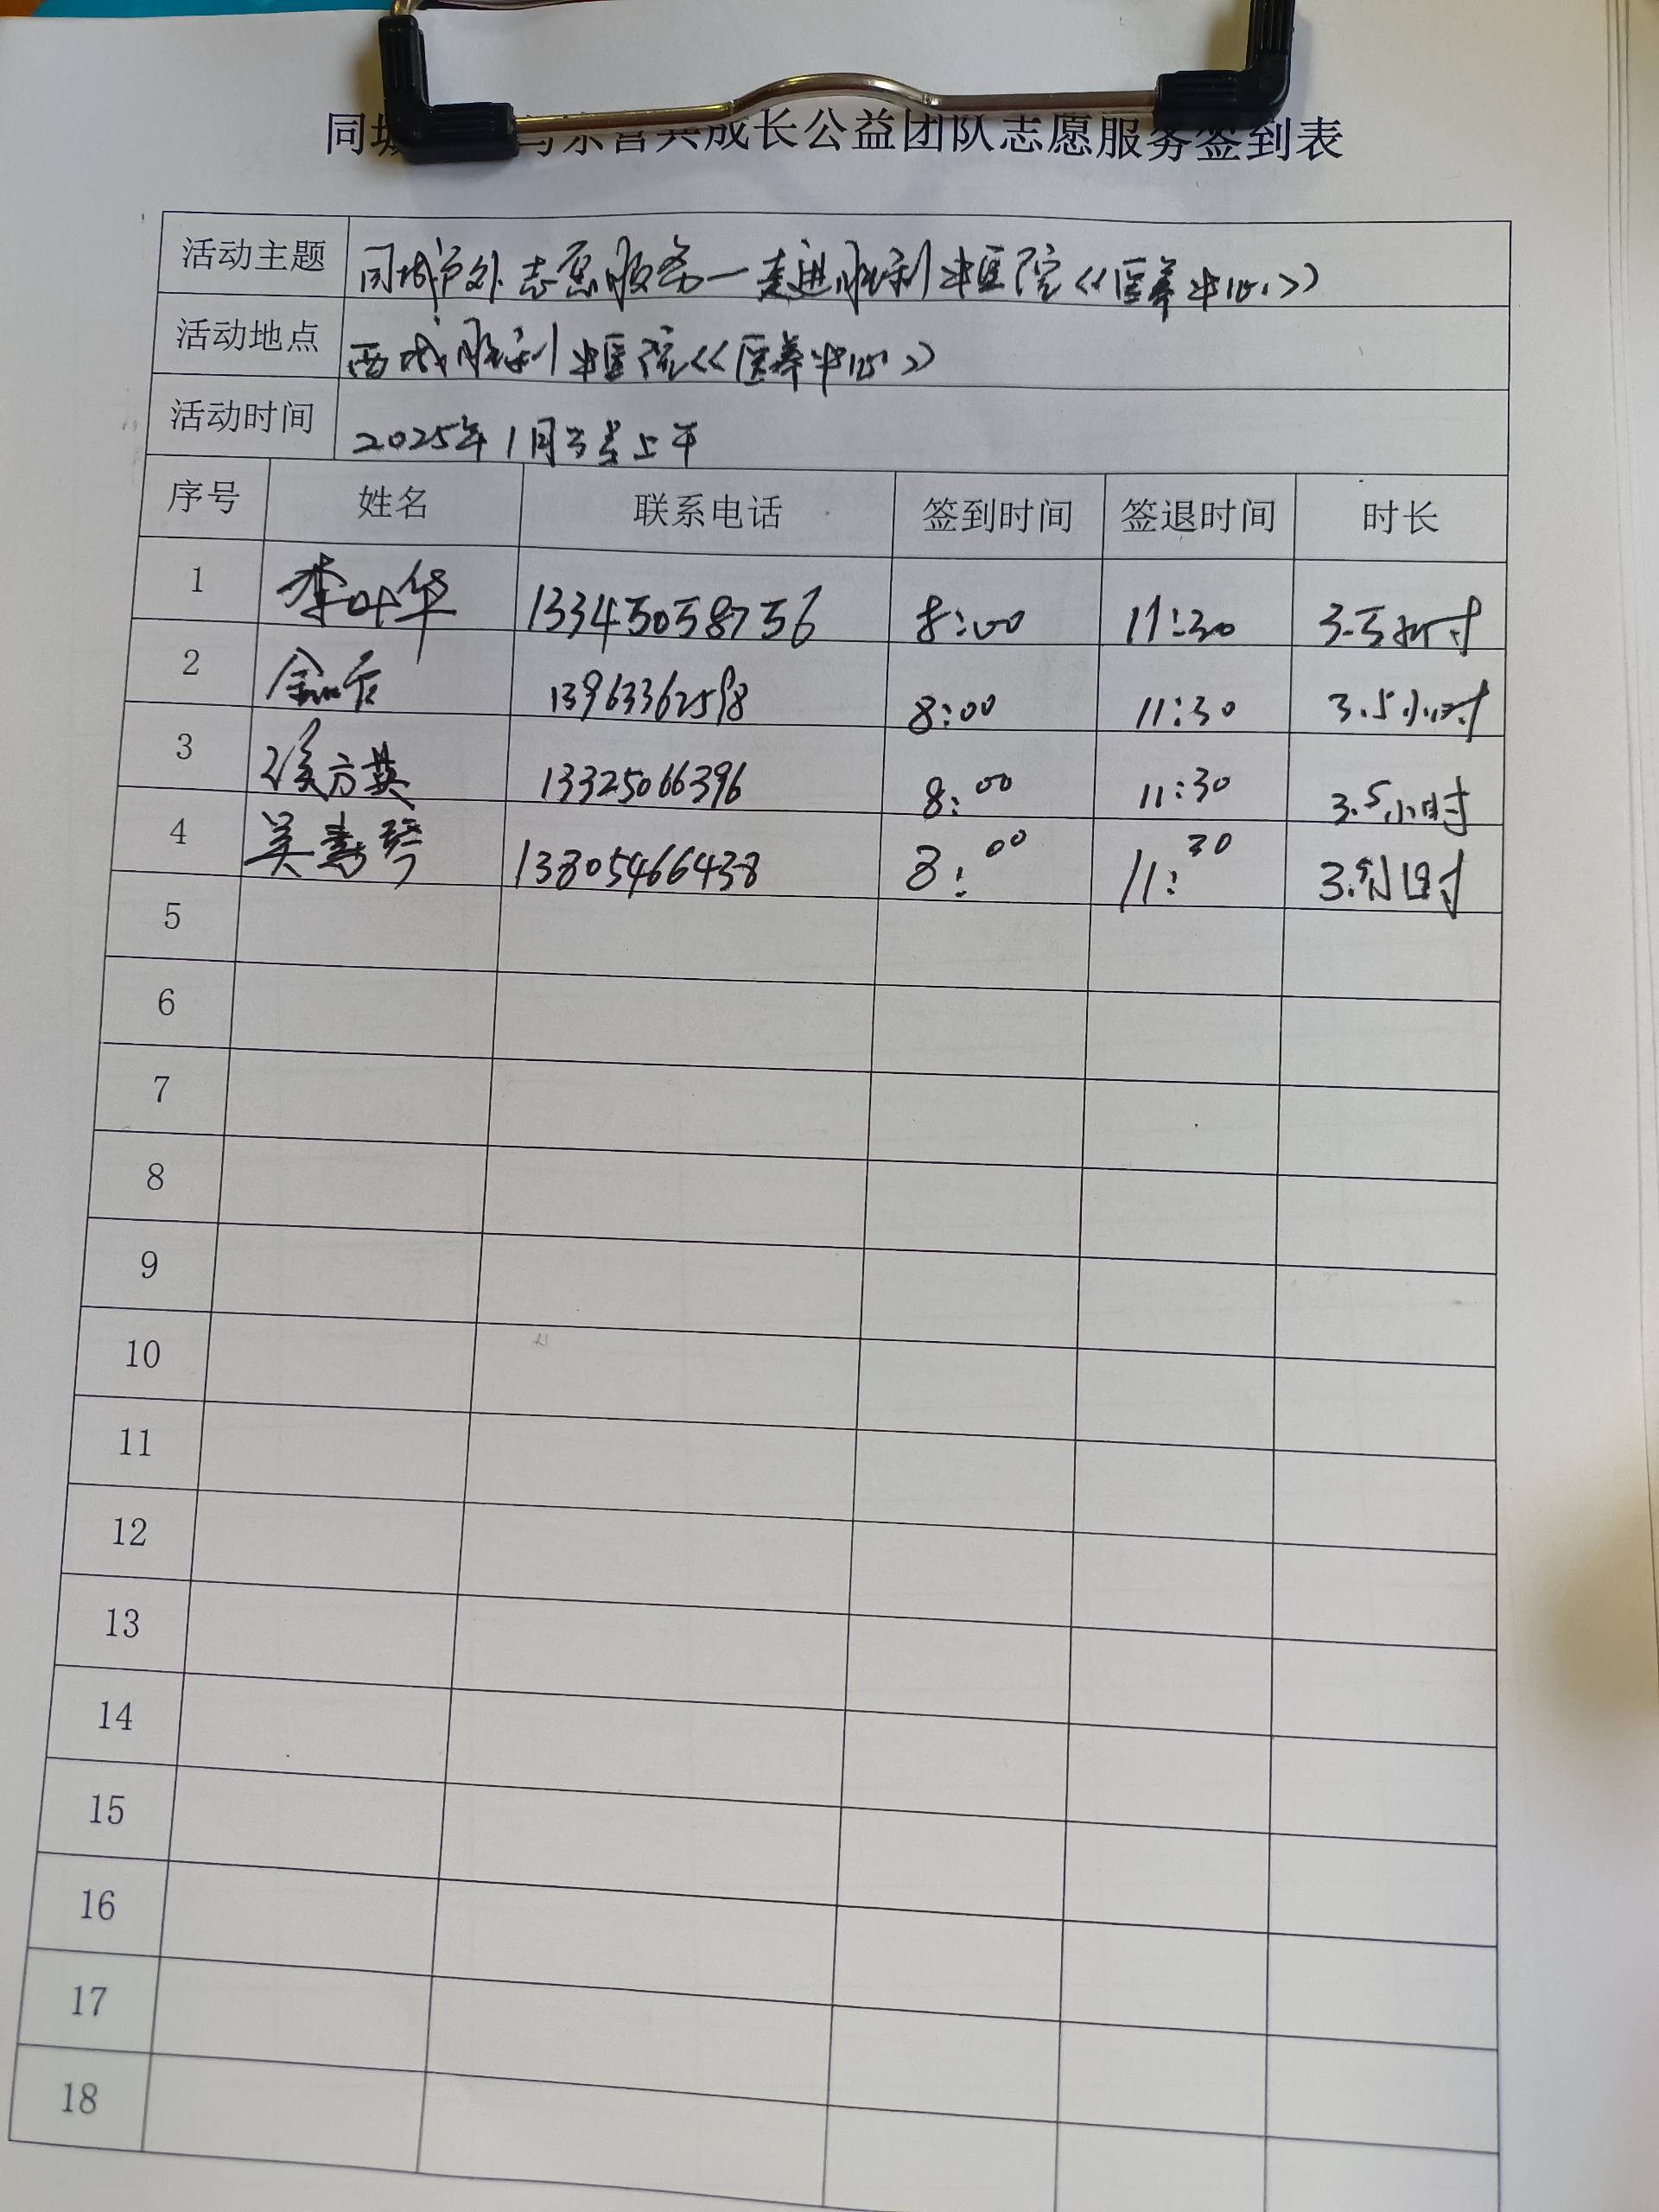 同城 与东营共成长公益团队志愿服务签到表
活动主题 同城户外志愿服务一走进胜利中医院《医养中心》
活动地点 西城胜利中医院《医养中心》
活动时间 2025年1月3号上午
序号 姓名 联系电话 签到时间 签退时间 时长
1 李叶华 13345058756 8:00 11:30 3.5小时
2 13963362598 8:00 11:30 3.5小时
3 侯方英 13325066396 8:00 11:30 3.5小时
4 吴寿琴 13805466438 8:00 11:30 3.5小时
5
6
7
8
9
10
11
12
13
14
15
16
17
18